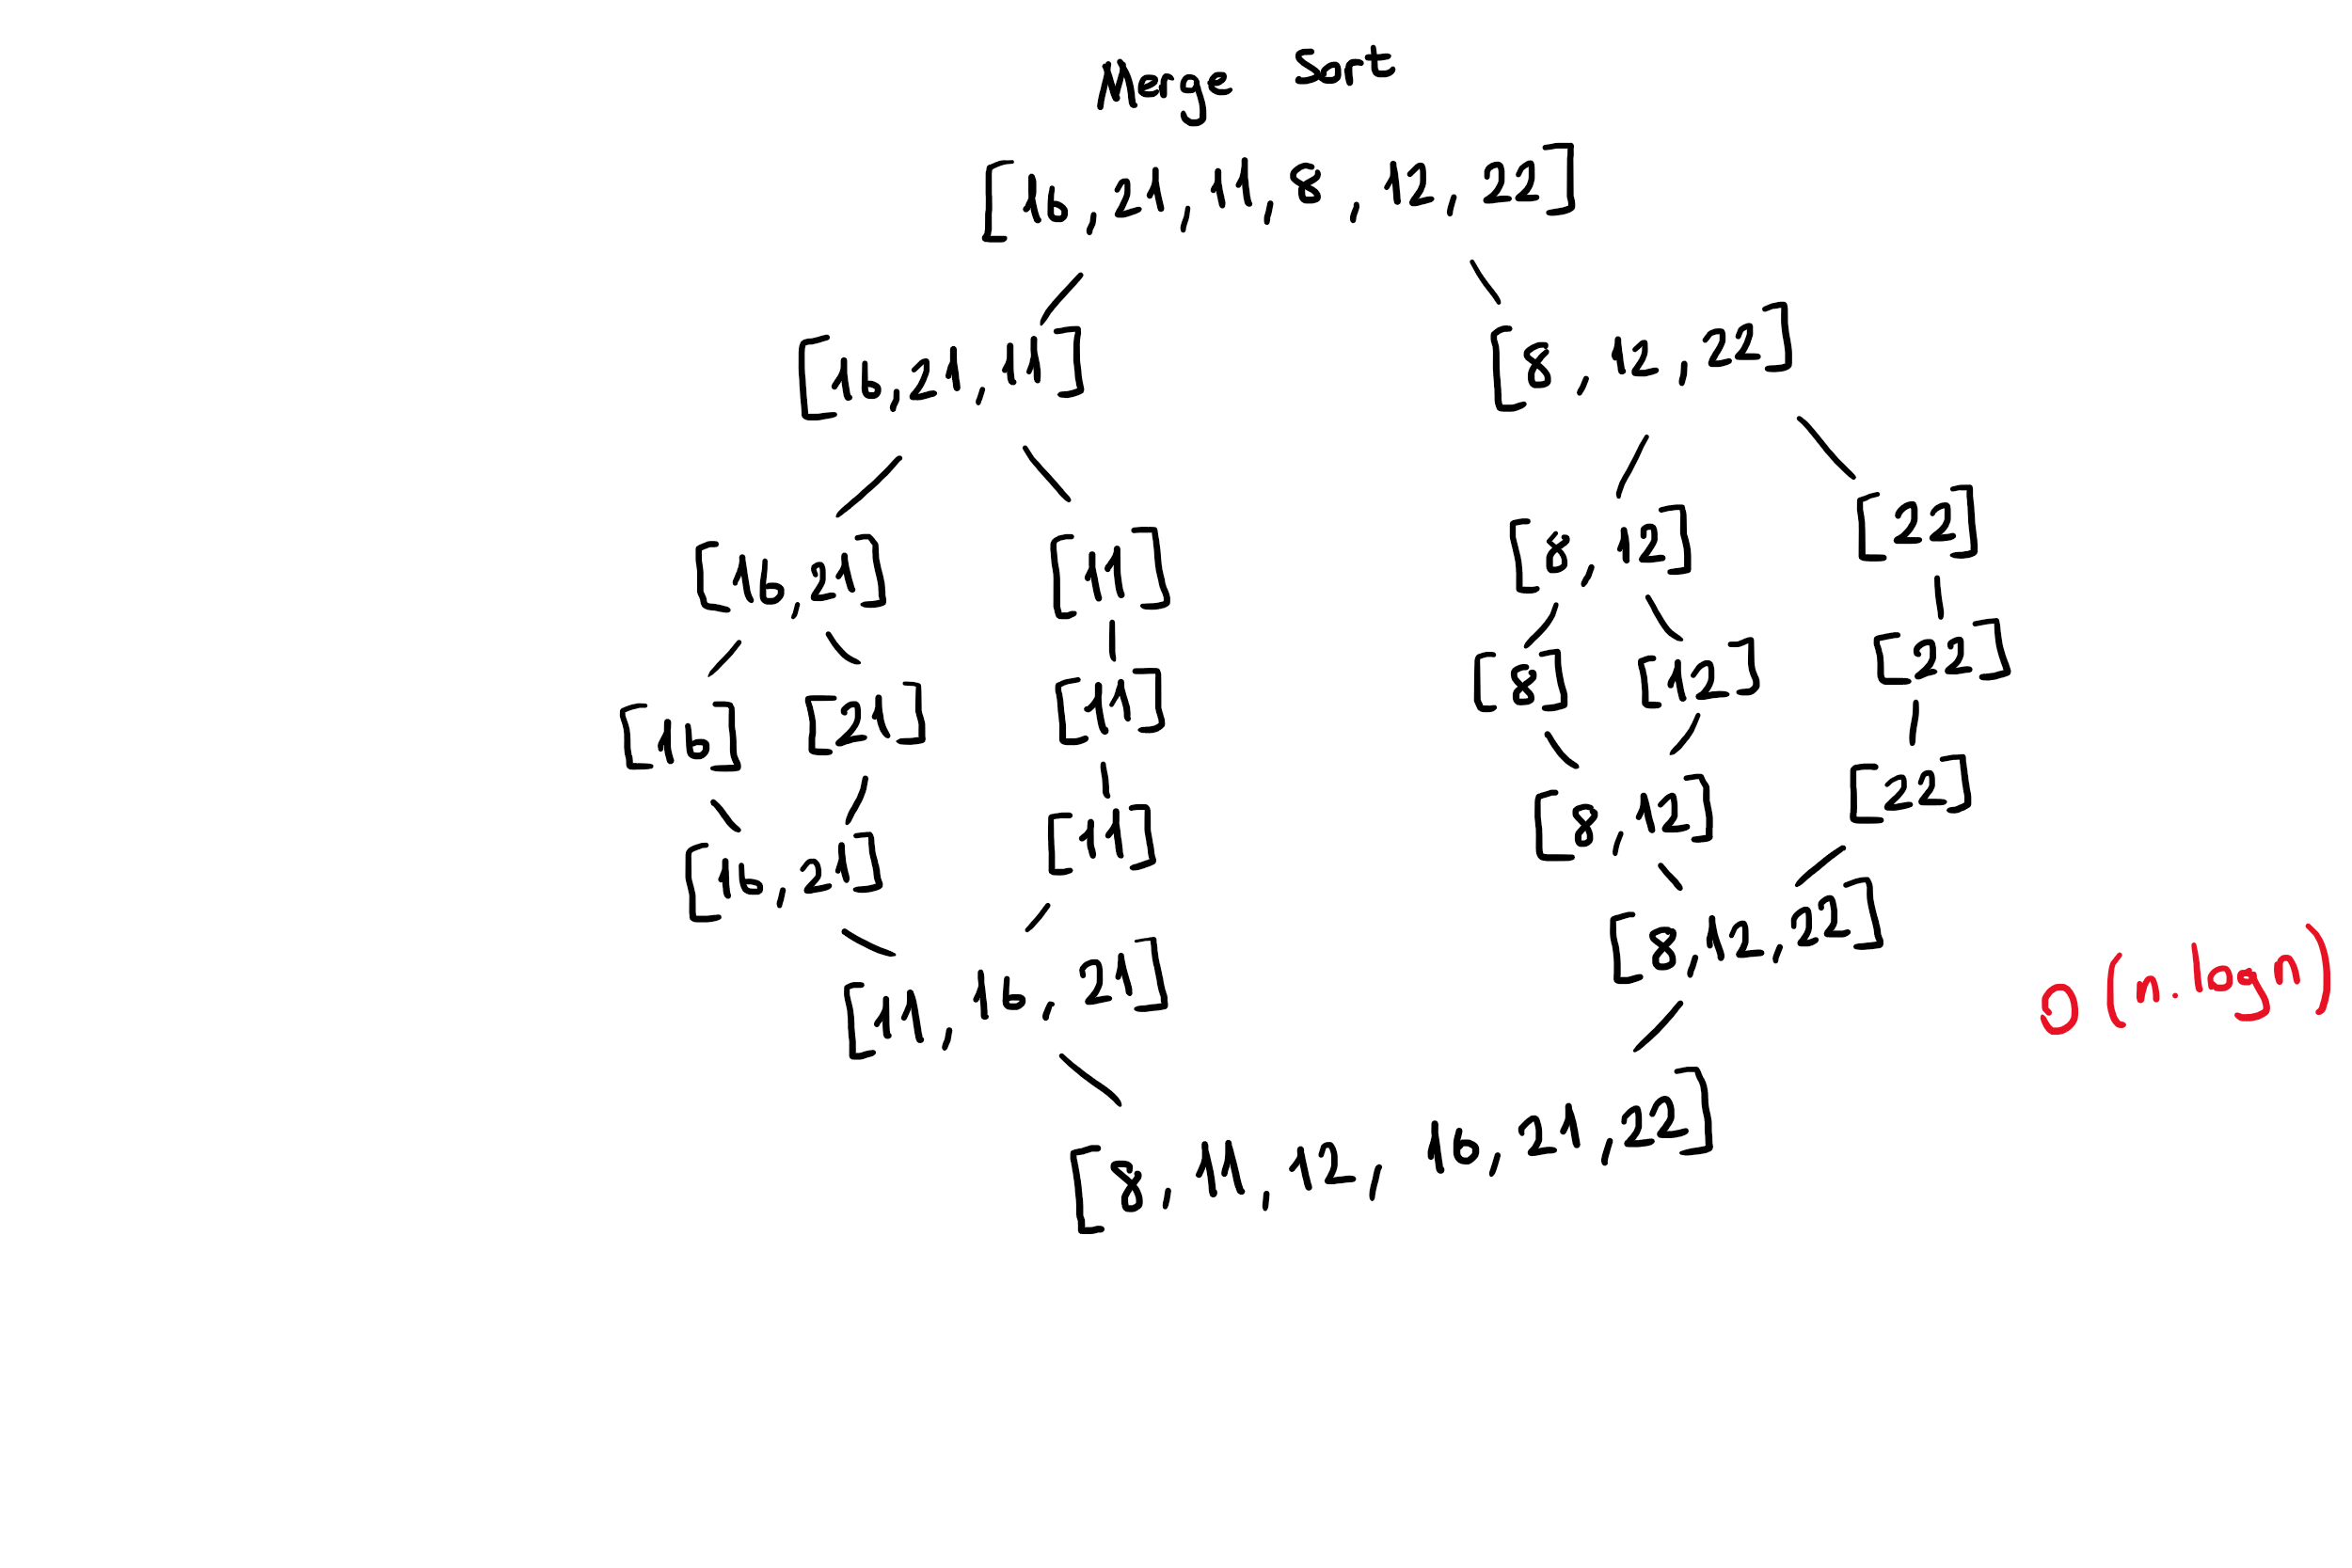 Merge Sort
[16, 21, 11, 8, 12, 22]
[16, 21, 11] [8, 12, 22]
[16, 21] [11] [8, 12] [22]
[16] [21] [11] [8] [12] [22]
[16, 21] [11] [8, 12] [22]
[11, 16, 21] [8, 12, 22]
O(n.logn)
[8, 11, 12, 16, 21, 22]